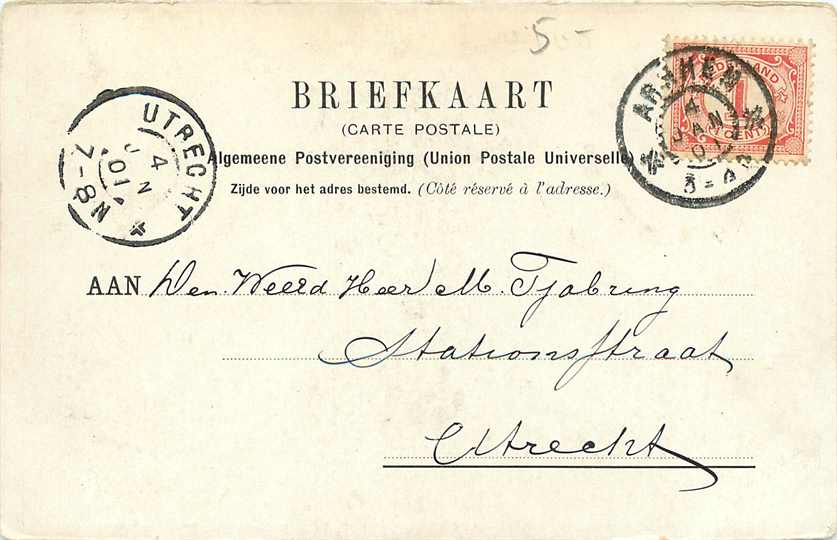 5.-
NEDERLAND
1
CENT
ARNHEM
4
JAN
01
3-4
UTRECHT
4
JAN
01
7-8N
BRIEFKAART
(CARTE POSTALE)
Algemeene Postvereeniging (Union Postale Universelle)
Zijde voor het adres bestemd. (Côté réservé à l'adresse.)
AAN Den Weerd Heer M. Tjabring
Stationsstraat
Utrecht